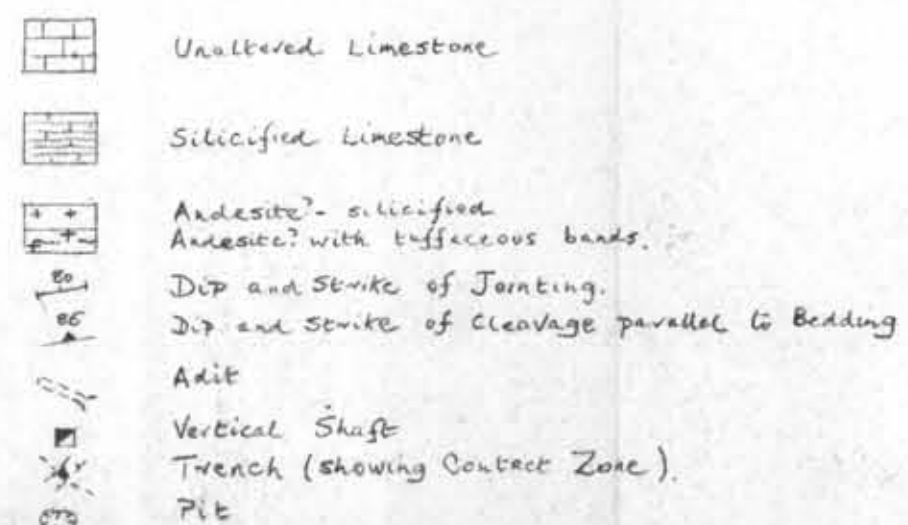 Unaltered Limestone
Silicified Limestone
Andesite? - silicified
Andesite? with tuffaceous bands.
80
Dip and Strike of Jointing.
86
Dip and Strike of Cleavage parallel to Bedding
Adit
Vertical Shaft
Trench (showing Contact Zone).
Pit